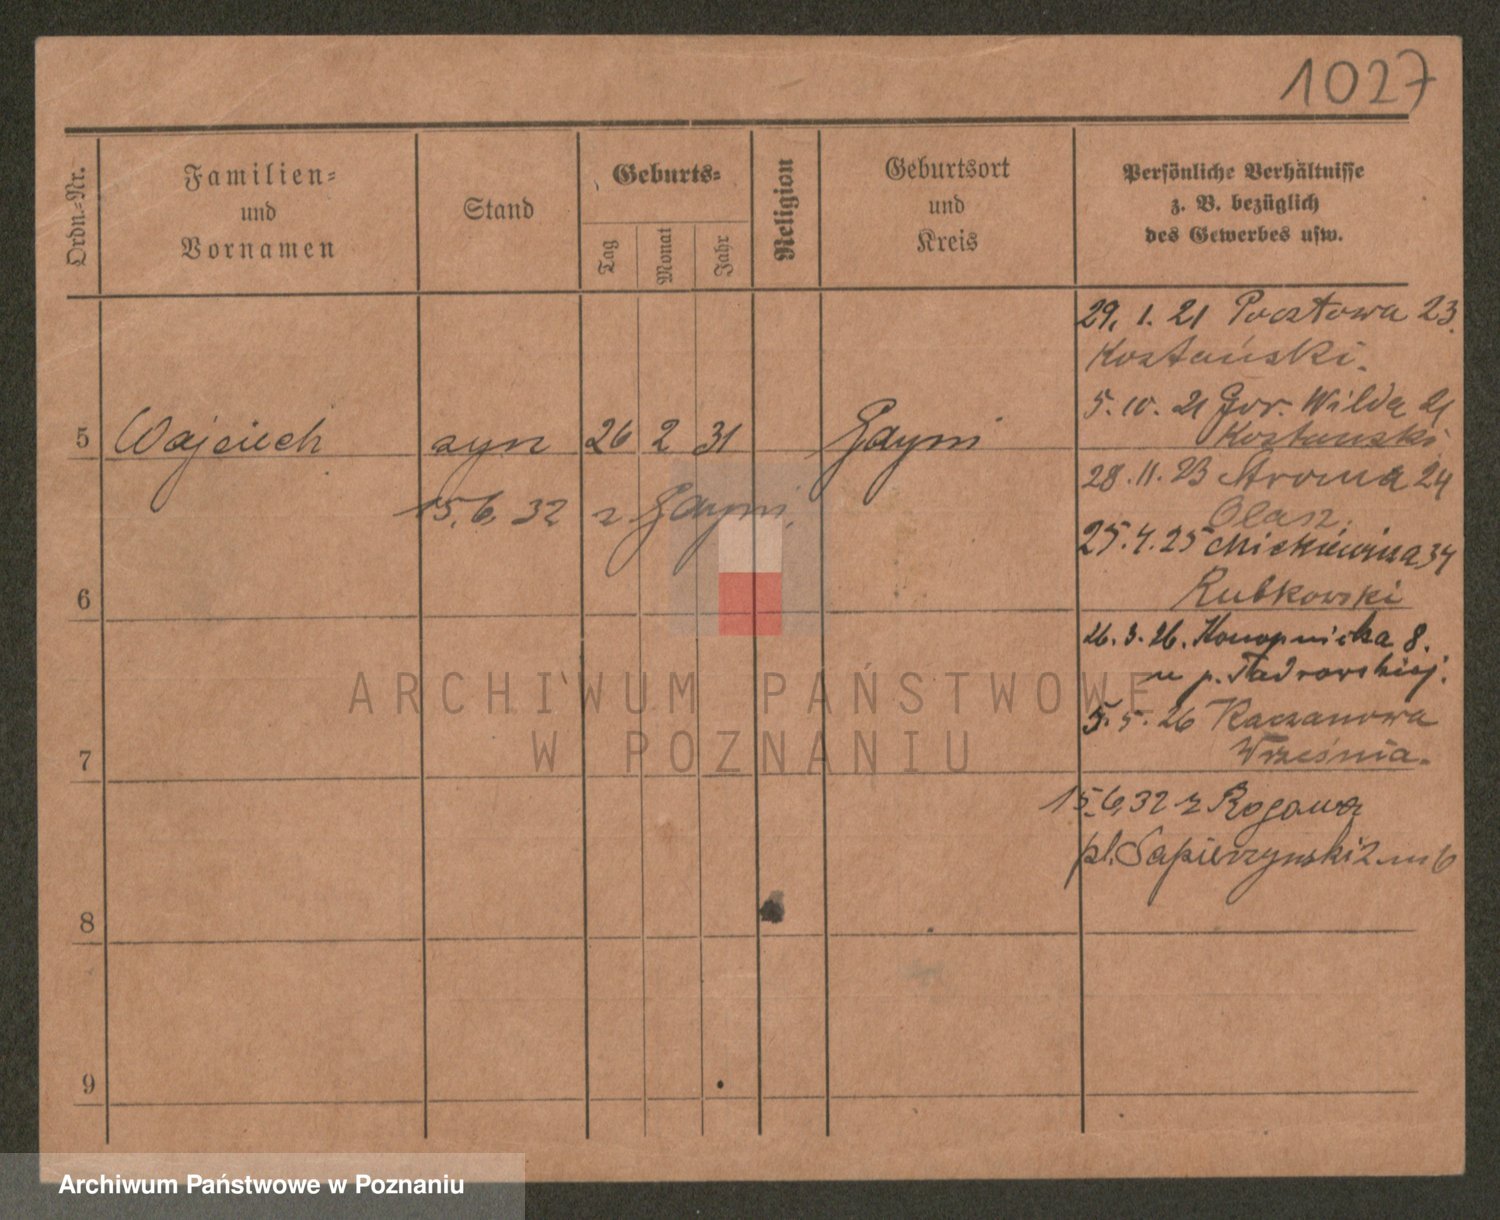 1027
Ordn.-Nr.
Familien-
und
Vornamen
Stand
Geburts-
Tag
Monat
Jahr
Religion
Geburtsort
und
Kreis
Persönliche Verhältnisse
z. B. bezüglich
des Gewerbes usw.
29. 1. 21 Pocztowa 23.
Kostański.
5. 10. 21 Gór. Wilda 21
Kostanski
5 Wojciech syn 26 2 31
28. 11. 23 Stroma 24
15. 6. 32 z
25. 4. 25 Mickiewicza 34
Rubkowski
6
26. 3. 26. Konopnicka 8.
u p.
5. 5. 26 Kaczanowo
Września.
7
15. 6. 32 z Rogowa
pl. Sapierzynski 2 m 6
8
9
ARCHIWUM PAŃSTWOWE
W POZNANIU
Archiwum Państwowe w Poznaniu